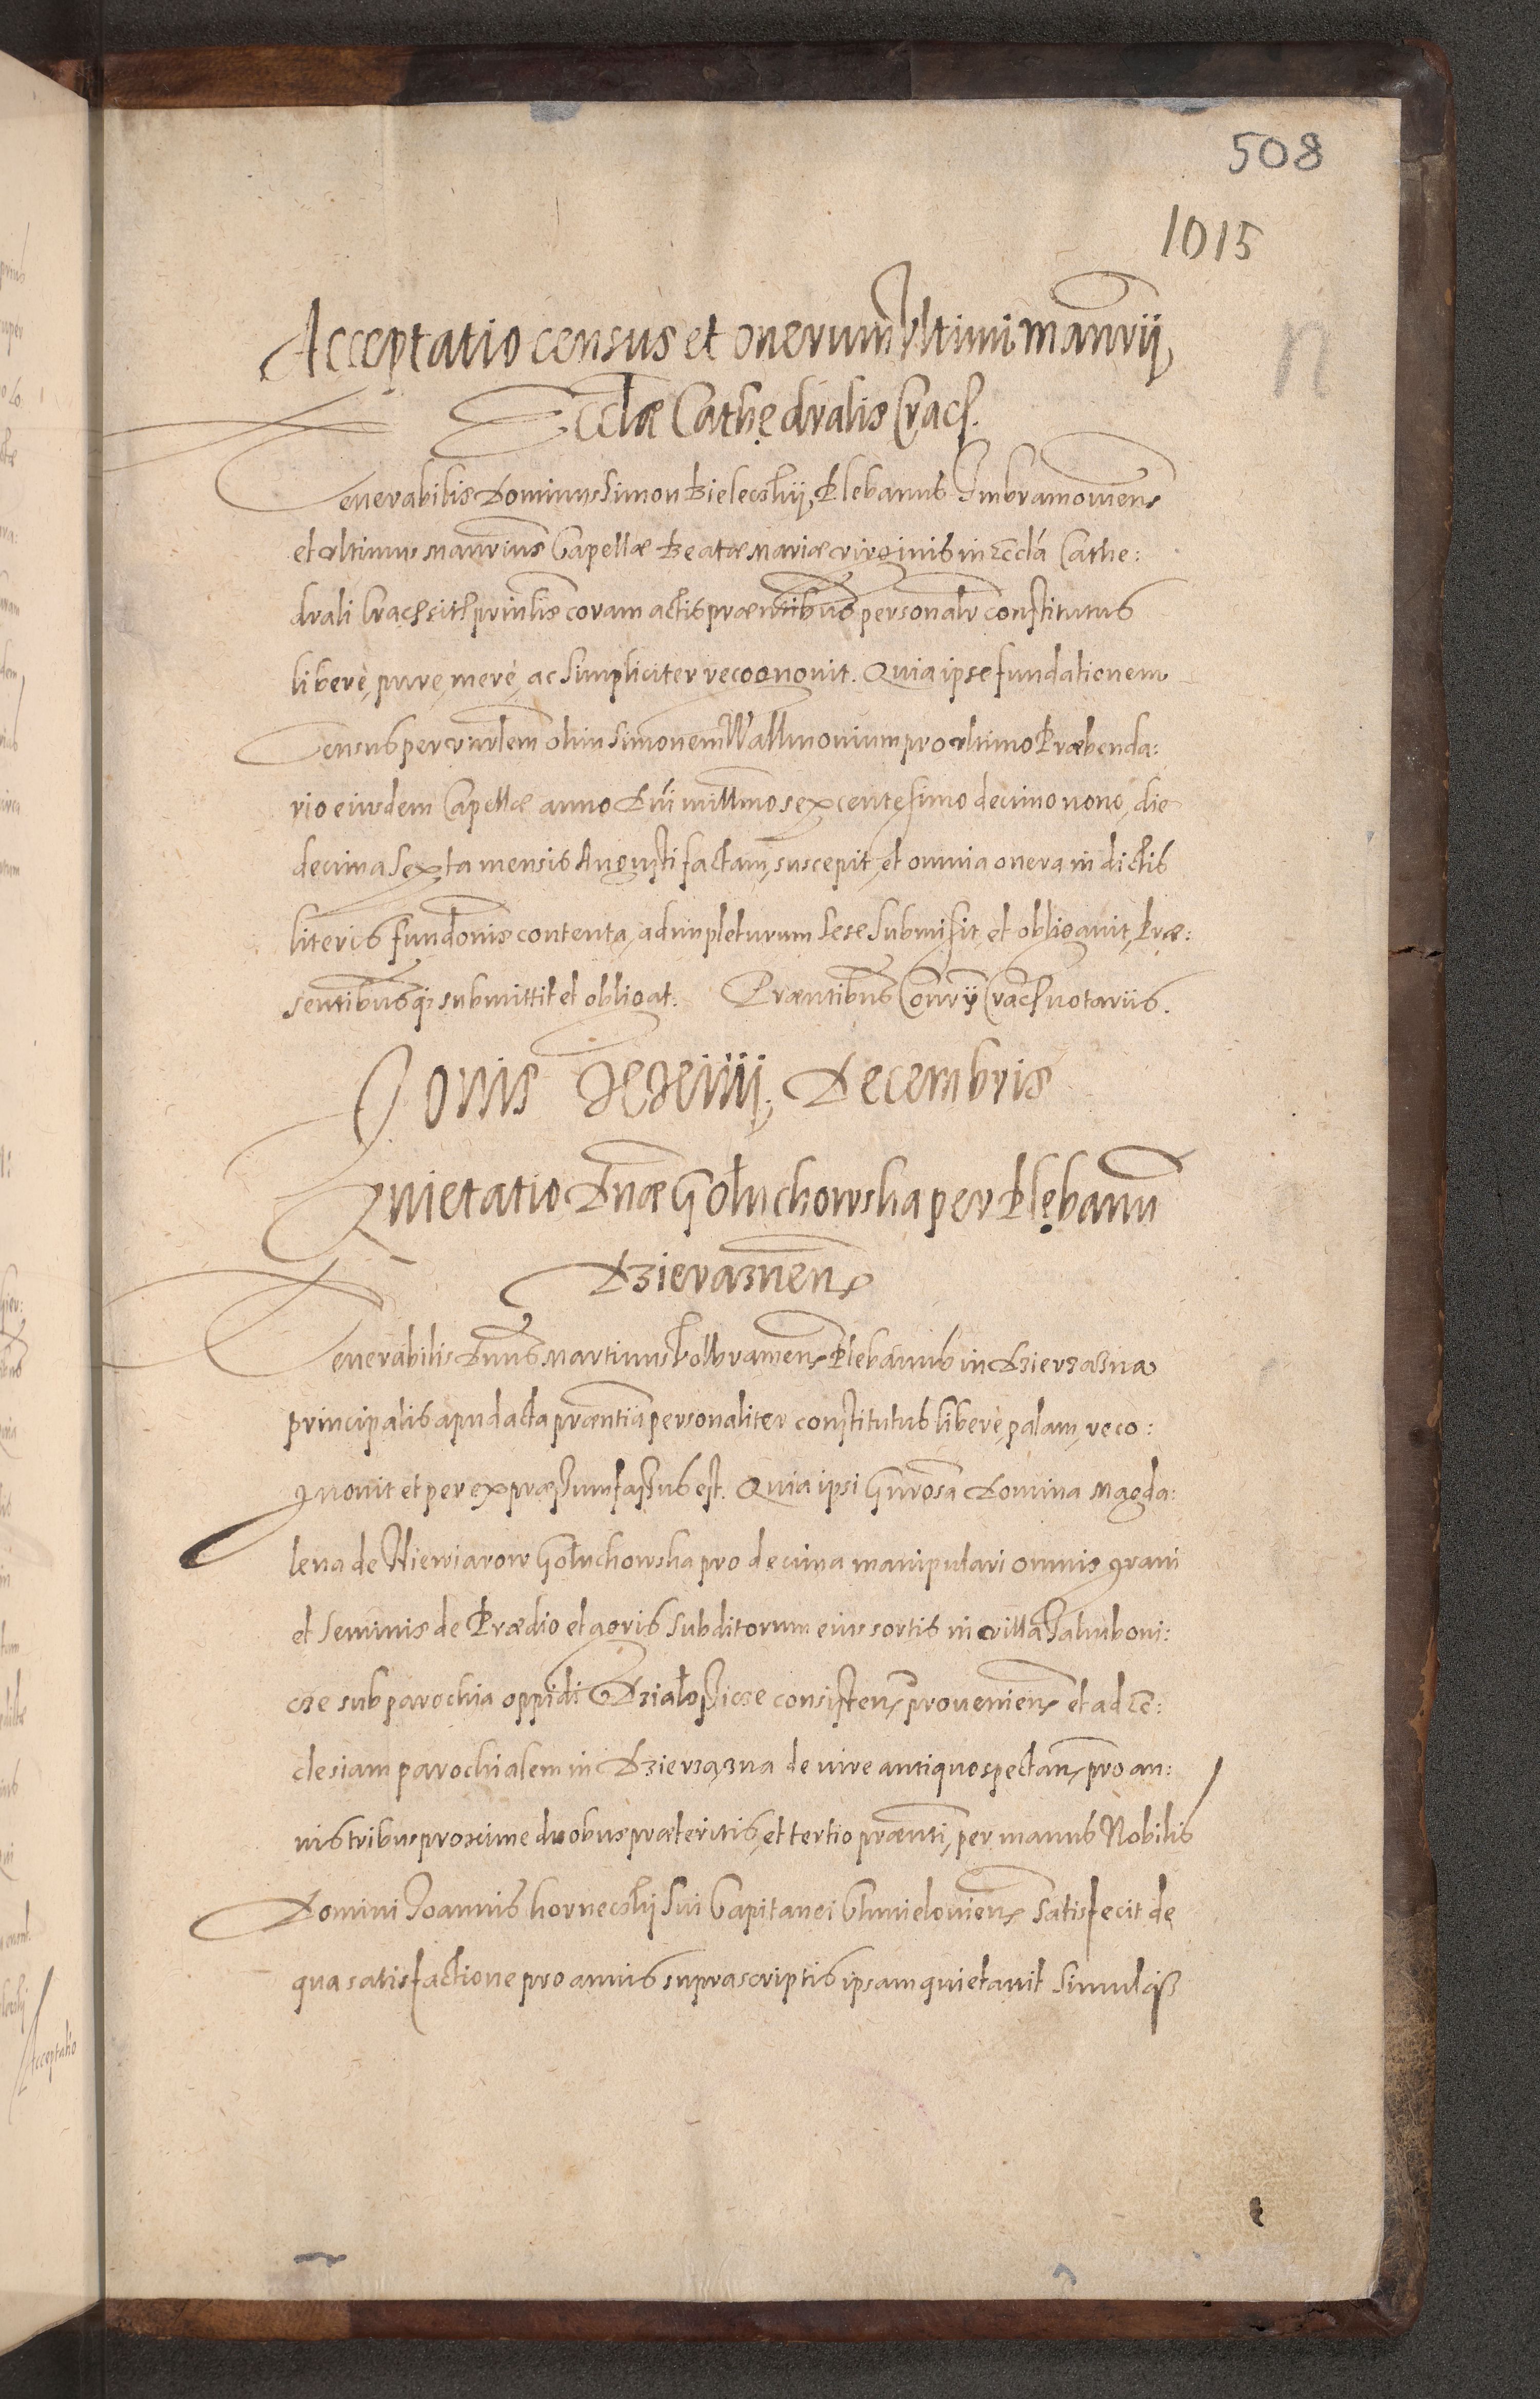 508
1015
n
Acceptatio census et onerum Ultimi Manrii,
Eccłae Cathedralis Crac.
Venerabilis Dominus Simon Bieleczkij, Plebanus Imbramouien.
et ultimus manrius Capellae Beatae Mariae virginis in Eccla Cathe:
drali Crac. sit. prinlis coram actis praentibus personalr constitutus
liberè, pure, merè, ac simpliciter recognouit. Quia ipse fundationem
Census per olim Simonem pro ultimo Praebenda:
rio eiusdem Capellae anno Dni millmo sexcentesimo decimo nono, die
decima sexta mensis Augusti factam, suscepit, et omnia onera in dictis
literis fundonis contenta, adimpleturum sese submisit, et obligauit, Prae:
sentibusq; submittit et obligat. Praentibus Conrÿ Crac. notariis.
Jouis xxiiij, Decembris
Quietatio Dnae Gołuchowska per Plebanu
Dzieraznen.
Venerabilis Dnus Martinus Wolbramen. Plebanus in Dzierzazna
principalis apud acta praentia personaliter constitutus liberè, palam, reco:
gnouit et per expraessum fassus est. Quia ipsi Gnrosa Domina Magda:
lena de Niewiarow Gołuchowska pro decima manipulari omnis grani
et seminis de Praedio et agris subditorum eius sortis in villa
cze sub parochia oppidi Działoszicze consisten. prouenien. et ad Ec:
clesiam parochialem in Dzierzązna de iure antiquo spectan. pro an:
nis tribus proxime duobus praeteritis, et tertio praenti, per manus Nobilis
Domini Joannis Horneczkij sui Capitanei Chmielouien. satisfecit de
qua satisfactione pro annis suprascriptis ipsam quietauit simulq;
Acceptatio